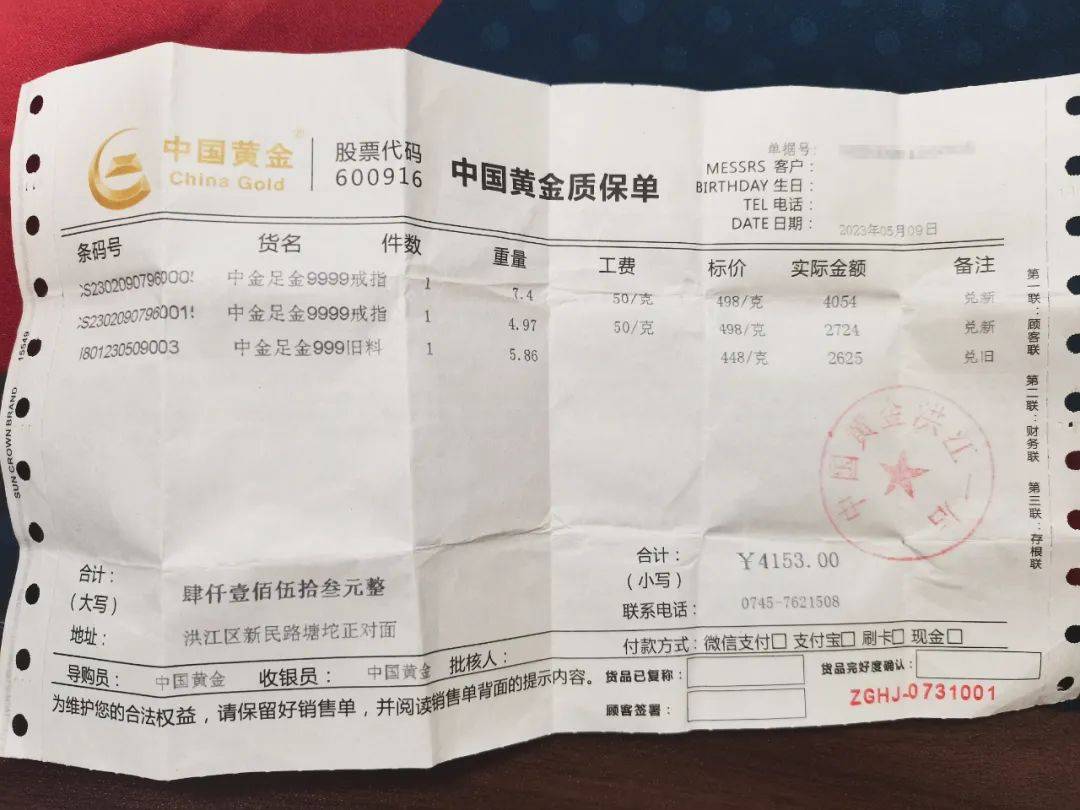 中国黄金®
China Gold
股票代码
600916
中国黄金质保单
单据号:
MESSRS 客户:
BIRTHDAY 生日:
TEL 电话:
DATE 日期: 2023年05月09日
条码号 货名 件数 重量 工费 标价 实际金额 备注
CS2302090796000 中金足金9999戒指 1 7.4 50/克 498/克 4054 兑新
CS2302090796001 中金足金9999戒指 1 4.97 50/克 498/克 2724 兑新
1801230509003 中金足金999旧料 1 5.86 448/克 2625 兑旧
第一联:顾客联 第二联:财务联 第三联:存根联
SUN CROWN BRAND 15549
中国黄金洪江一店
合计:
(大写) 肆仟壹佰伍拾叁元整
合计:
(小写) ¥4153.00
联系电话: 0745-7621508
地址: 洪江区新民路塘坨正对面
付款方式:微信支付□ 支付宝□ 刷卡□ 现金□
导购员: 中国黄金 收银员: 中国黄金 批核人:
货品已复称: 货品完好度确认:
为维护您的合法权益,请保留好销售单,并阅读销售单背面的提示内容。
顾客签署:
ZGHJ-0731001